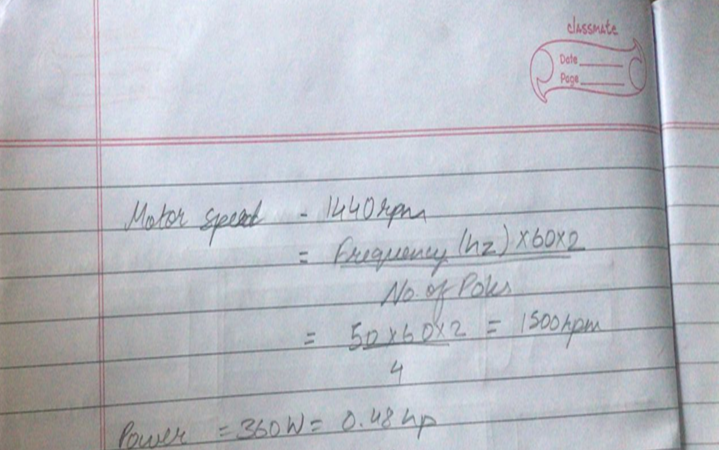 classmate
Date
Page
Motor speed - 1440 rpm
= Frequency (hz) x 60 x 2
No. of Poles
= 50 x 60 x 2 = 1500 rpm
4
Power = 360 W = 0.48 hp